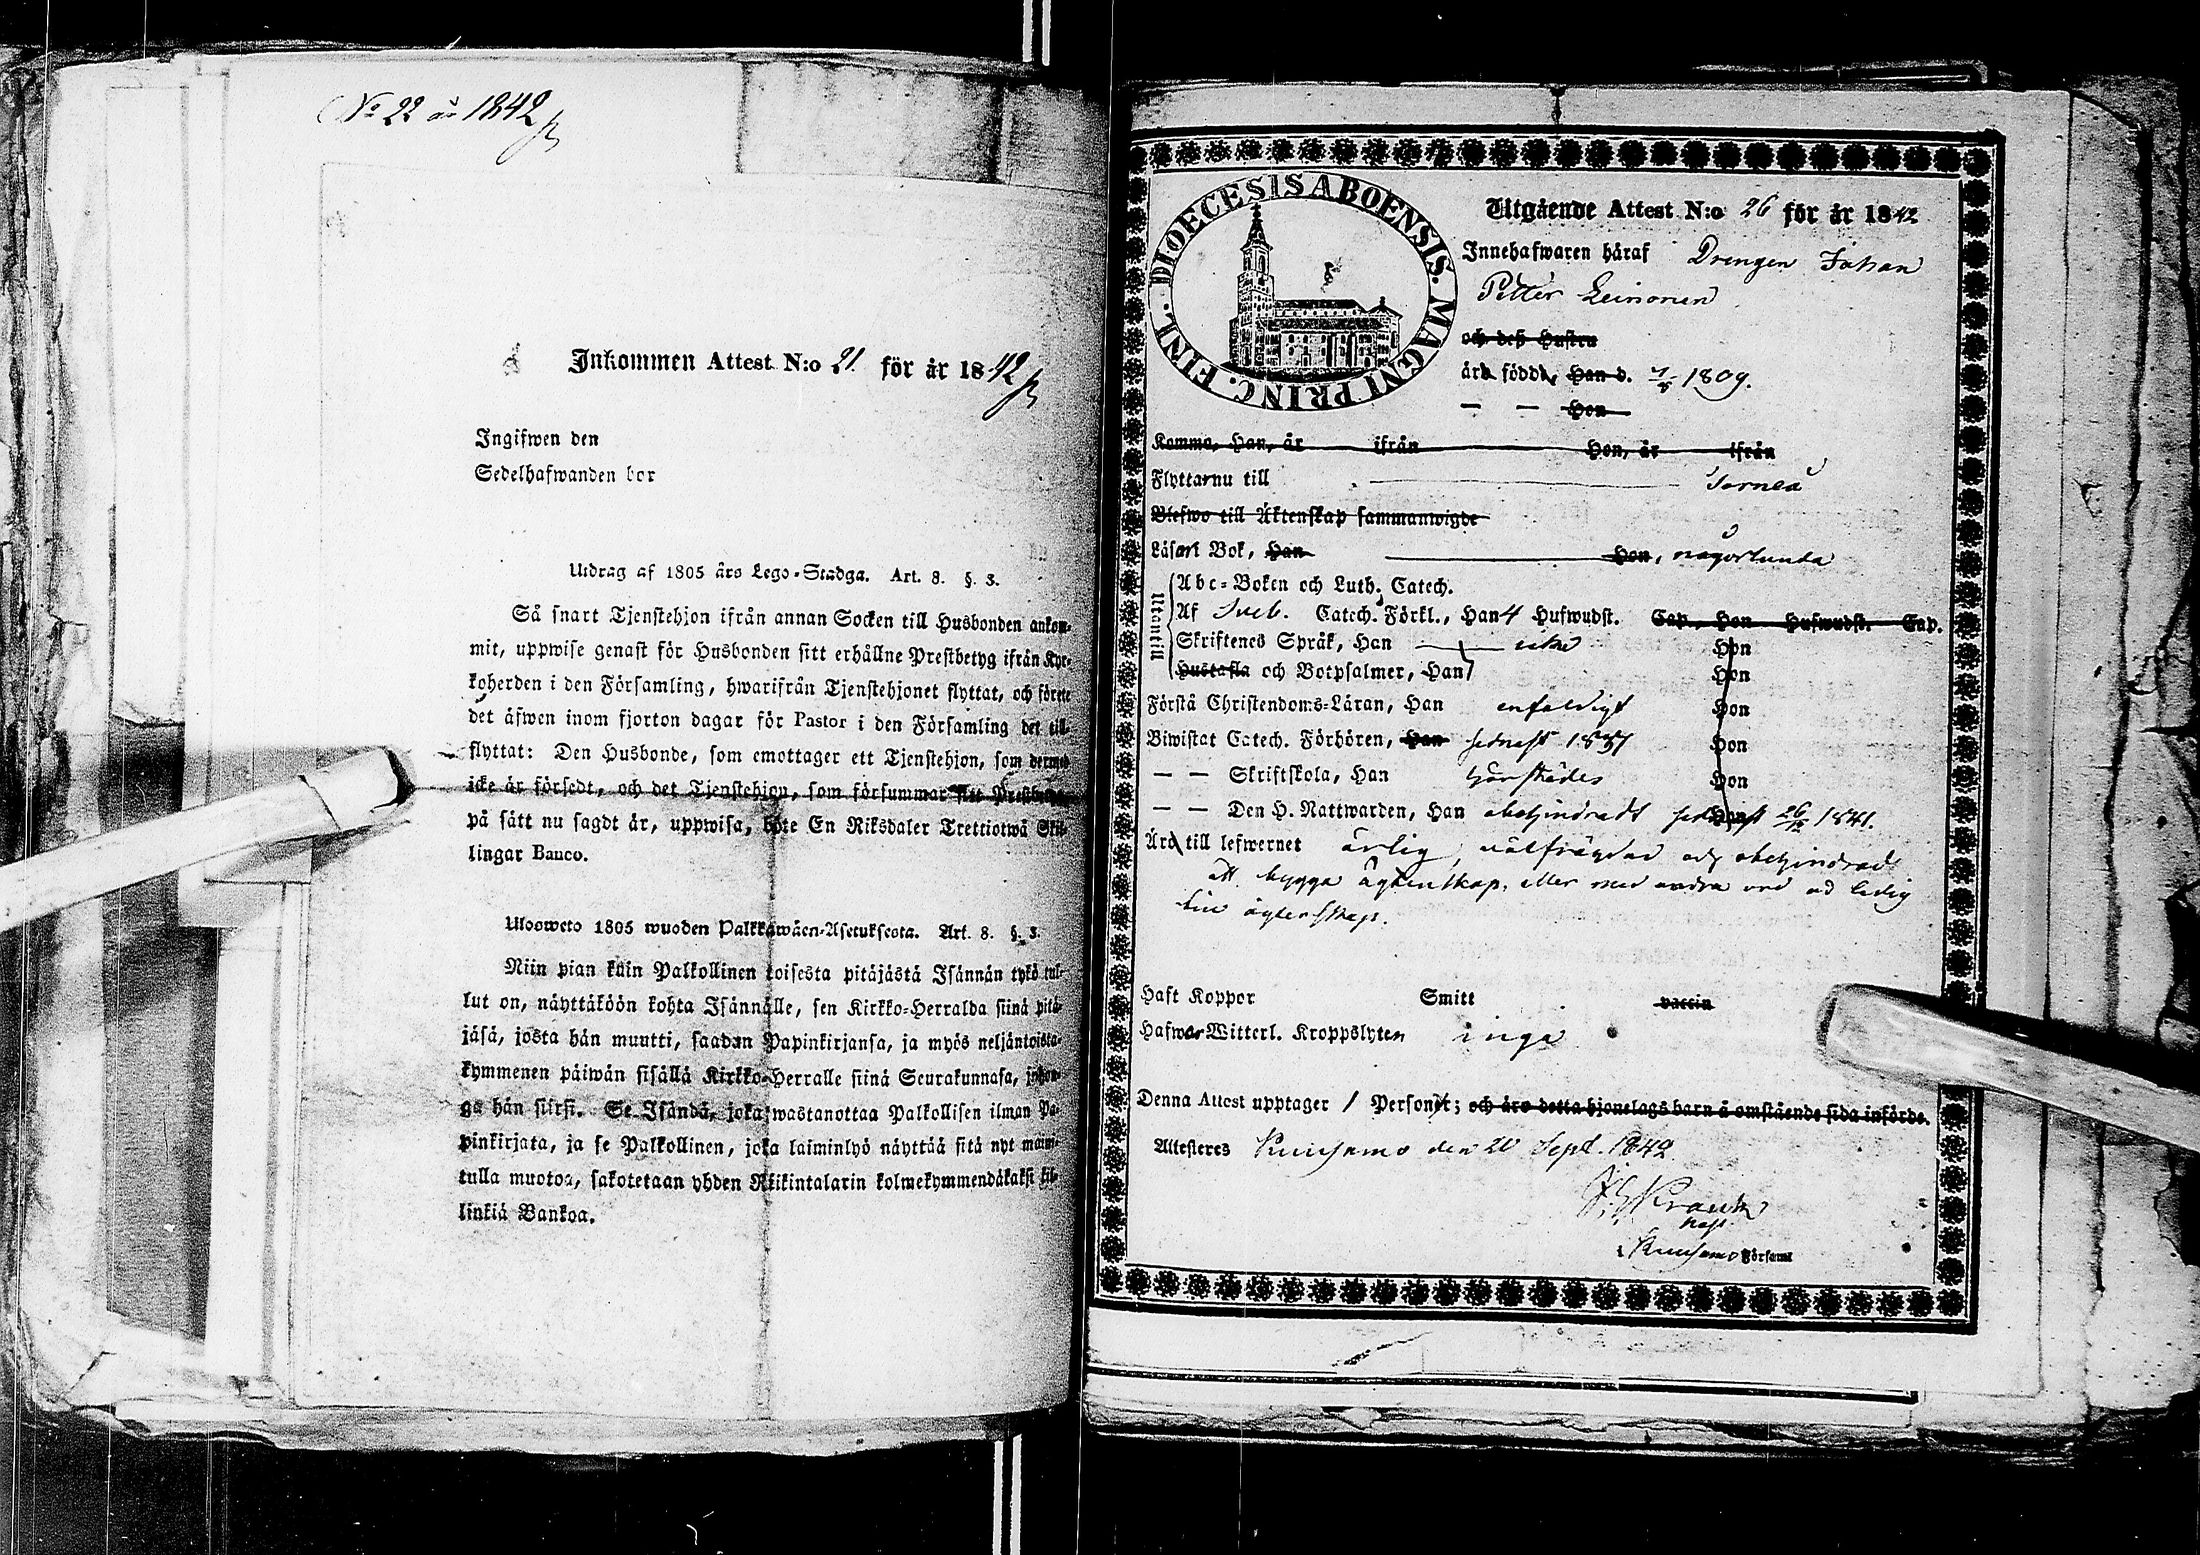 No 22 år 1842
Inkommen Attest N:o 21 för år 1842
Ingifwen den
Sedelhafwanden bor
Utdrag af 1805 års Lego-Stadga. Art. 8. §. 3.
Så snart Tjenstehjon ifrån annan Socken till Husbonden ankom-
mit, uppwise genast för Husbonden sitt erhållne Prestbetyg ifrån Kyr-
koherden i den Församling, hwarifrån Tjenstehjonet flyttat, och förete
det äfwen inom fjorton dagar för Pastor i den Församling det till-
flyttat: Den Husbonde, som emottager ett Tjenstehjon, som dermed
icke är försedt, och det Tjenstehjon, som försummar sitt Prestbetyg
på sätt nu sagdt är, uppwisa, böte En Riksdaler Trettiotwå Skil-
lingar Banco.
Ulosweto 1805 wuoden Palkkawäen-Asetuksesta. Art. 8. §. 3.
Niin pian kuin Palkollinen toisesta pitäjästä Isännän tykö tul-
lut on, näyttäköön kohta Isännälle, sen Kirkko-Herralda siinä pitä-
jäsä, josta hän muutti, saadan Papinkirjansa, ja myös neljäntoista-
kymmenen päiwän sisällä Kirkko-Herralle siinä Seurakunnasa, johon-
ga hän siirsi. Se Isändä, joka wastanottaa Palkollisen ilman Pa-
pinkirjata, ja se Palkollinen, joka laiminlyö näyttää sitä nyt maini-
tulla muotoa, sakotetaan yhden Riikintalarin kolmekymmendäkaksi kil-
linkiä Bankoa.
DIOECESIS ABOENSIS. MAGNI PRINC. FINL.
Utgående Attest N:o 26 för år 1842
Innehafwaren häraf Drengen Johan
Petter Leinonen
och deß Hustru
äro födde, Han d. 1809.
— — Hon
Komma, Han, år ifrån Hon, år ifrån
Flyttar nu till Torneå
Blefwo till Äktenskap sammanwigde
Läser i Bok, Han Hon, någorlunda
Utantill
Abc-Boken och Luth. Catech.
Af Sveb. Catech. Förkl., Han 4 Hufwudst. Cap., Hon Hufwudst. Cap.
Skriftenes Språk, Han icke Hon
Hustafla och Botpsalmer, Han Hon
Förstå Christendoms-Läran, Han enfaldigt Hon
Biwistat Catech. Förhören, Han sednast 1837 Hon
— — Skriftskola, Han härstädes Hon
— — Den H. Nattwarden, Han obehindradt sednast 26/12 1841.
Äro till lefwernet ärlig, välfrägdad och obehindrad
att bygga ägtenskap, eller med andra ord ledig
till ägtenskap.
Haft Koppor Smitt vaccin
Hafwa Witterl. Kroppslyten inga
Denna Attest upptager 1 Personer; och äro detta hjonelags barn å omstående sida införde.
Attesteres Kuusamo den 20 Sept. 1842
Kuusamo Församl